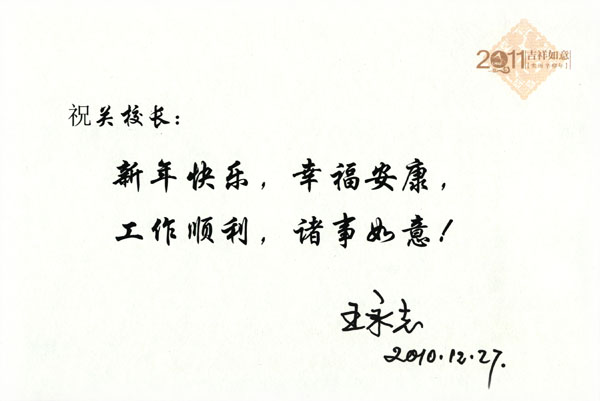 2011 吉祥如意
祝关校长：
新年快乐，幸福安康，
工作顺利，诸事如意！
王永志
2010.12.27.